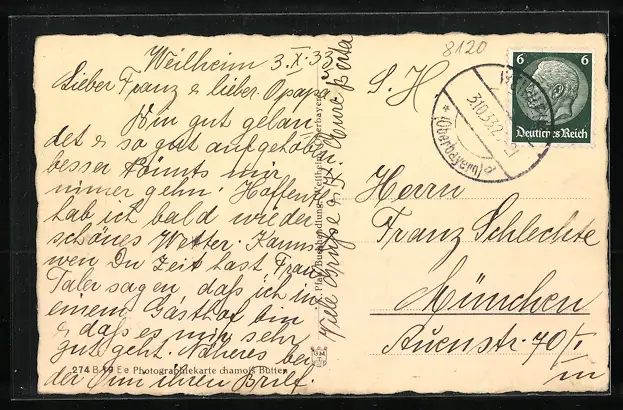 8120
Weilheim 3.X.33.
Lieber Franz & lieber Opapa!
Bin gut gelan-
det & so gut aufgehoben.
besser könnts mir
nimmer gehn. Hoffent-
hab ich bald wieder
schönes Wetter. Kannst
wen Du Zeit hast Frau
Taler sagen, daß ich in
einem Gasthof bin
& daß es mir sehr
gut geht. Näheres bei
der Omi ihren Brief.
Viele Grüße & Eure Berta
274 B 19 Ee Photographiekarte chamois Bütten
Buchhandlung, Weilheim, Oberbayern
S. H
Herrn
Franz Schlechte
München
Auenstr. 70/I
6 6
Deutsches Reich
(Oberbayern)
3.10.33